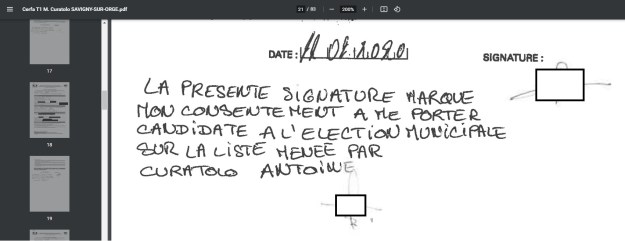 Cerfa T1 M. Curatolo SAVIGNY-SUR-ORGE.pdf
21 / 93
200%
17
18
19
DATE :
SIGNATURE :
LA PRESENTE SIGNATURE MARQUE
MON CONSENTEMENT A ME PORTER
CANDIDATE A L'ELECTION MUNICIPALE
SUR LA LISTE MENEE PAR
CURATOLO ANTOINE